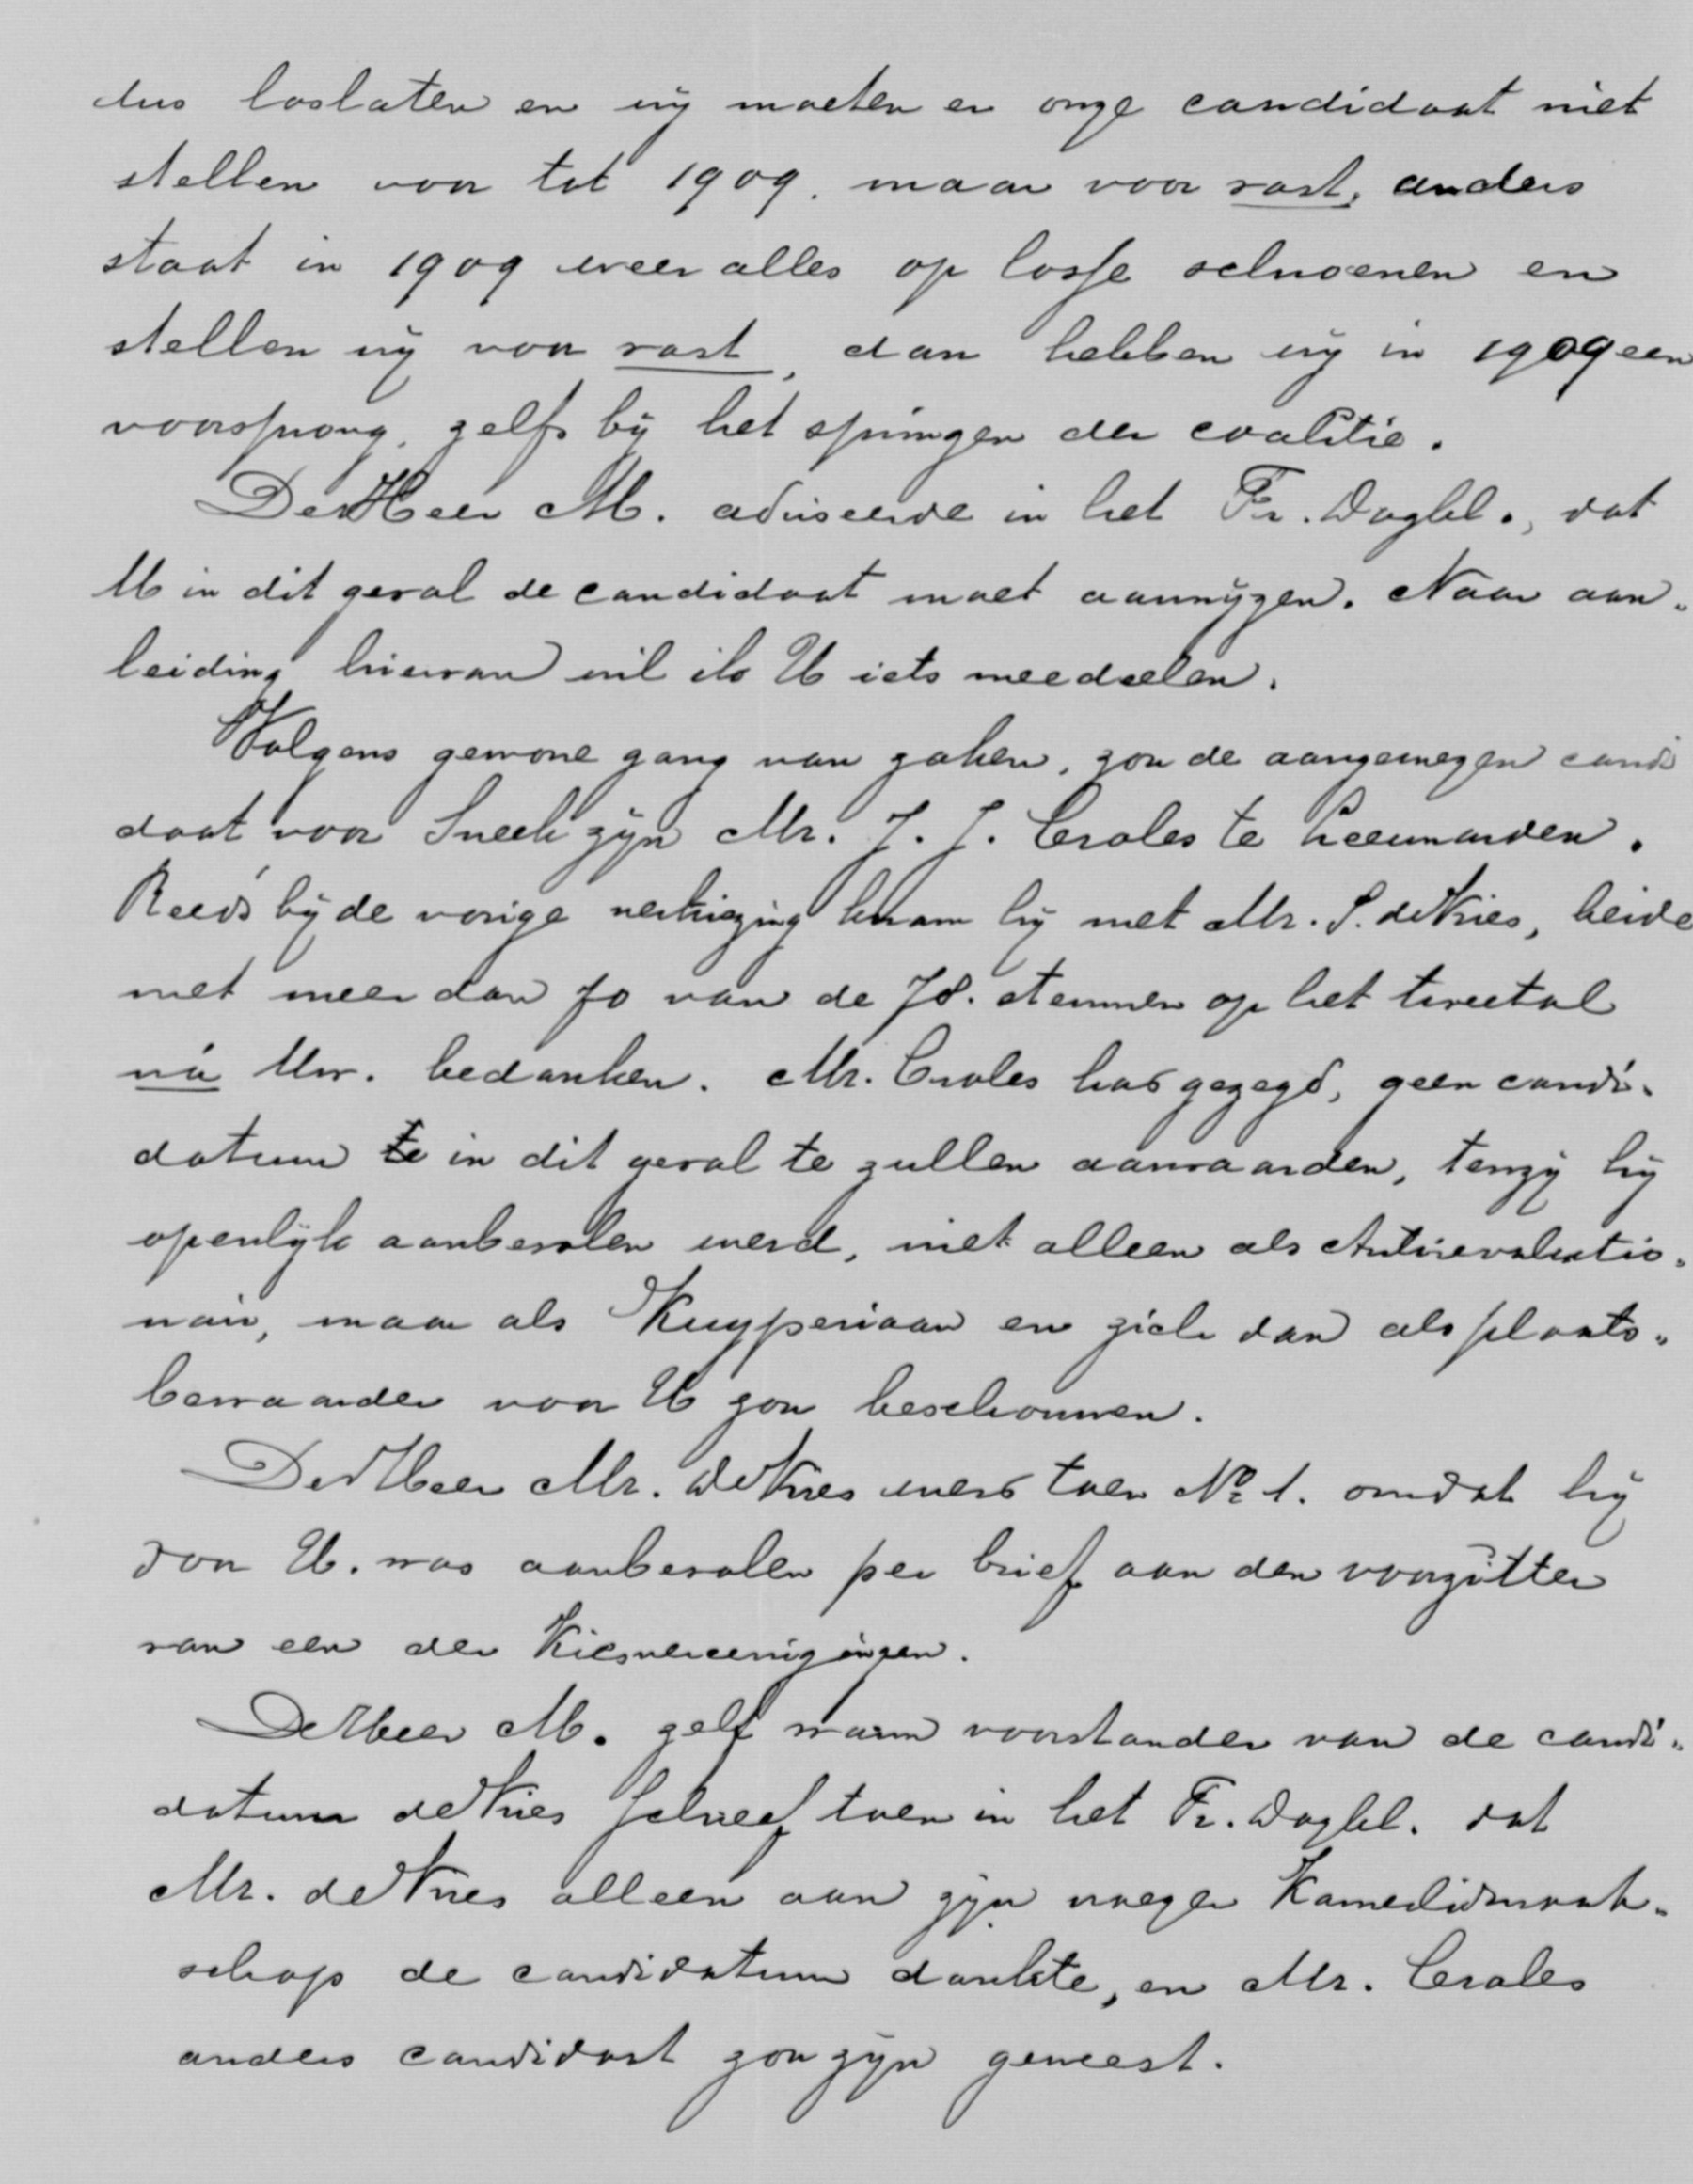 dus loslaten en wij moeten er onze candidaat niet
stellen voor tot 1909, maar voor vast, anders
staat in 1909 weer alles op losse schroeven en
stellen wij voor vast, dan hebben wij in 1909 een
voorsprong, zelfs bij het springen der coalitie.
De Heer M. adviseerde in het Fr. Dagbl., dat
U in dit geval de candidaat moet aanwijzen. Naar aan-
leiding hiervan wil ik U iets meedeelen.
Volgens gewone gang van zaken, zou de aangewezen candi
daat voor Sneek zijn Mr. J. J. Croles te Leeuwarden.
Reeds bij de vorige verkiezing kwam hij met Mr. S. de Vries, beide
met meer dan 70 van de 78. stemmen op het tweetal
ná Uw. bedanken. Mr. Croles had gezegd, geen candi-
datuur te in dit geval te zullen aanvaarden, tenzij hij
openlijk aanbevolen werd, niet alleen als Antirevolutio-
nair, maar als Kuyperiaan en zich dan als plaats-
bewaarder voor U zou beschouwen.
De Heer Mr. de Vries werd toen No 1. omdat hij
door U. was aanbevolen per brief aan den voorzitter
van een der Kiesvereenigingen.
De Heer M. zelf warm voorstander van de candi-
datuur de Vries schreef toen in het Fr. Dagbl. dat
Mr. de Vries alleen aan zijn vroeger Kamerlidmaat-
schap de candidatuur dankte, en Mr. Croles
anders candidaat zou zijn geweest.